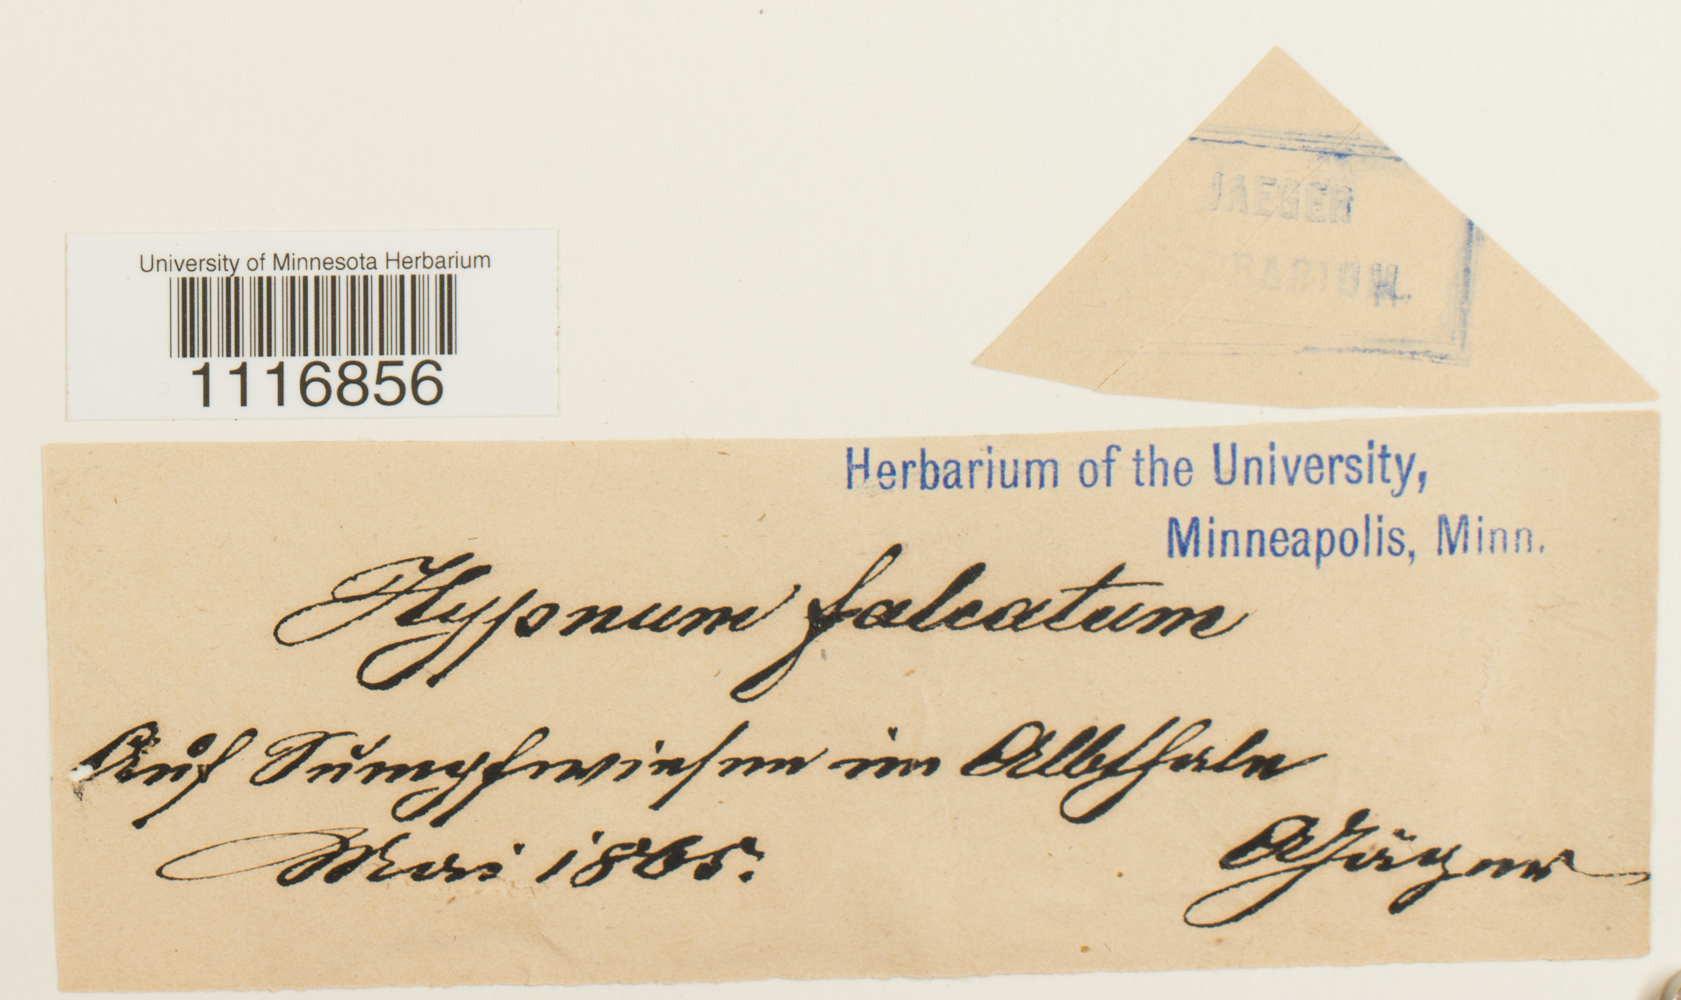 JAEGER
HERBARIUM
University of Minnesota Herbarium
1116856
Herbarium of the University,
Minneapolis, Minn.
Hypnum falcatum
Auf Sumpfwiesen im Albthale
Mai 1865.
AJäger